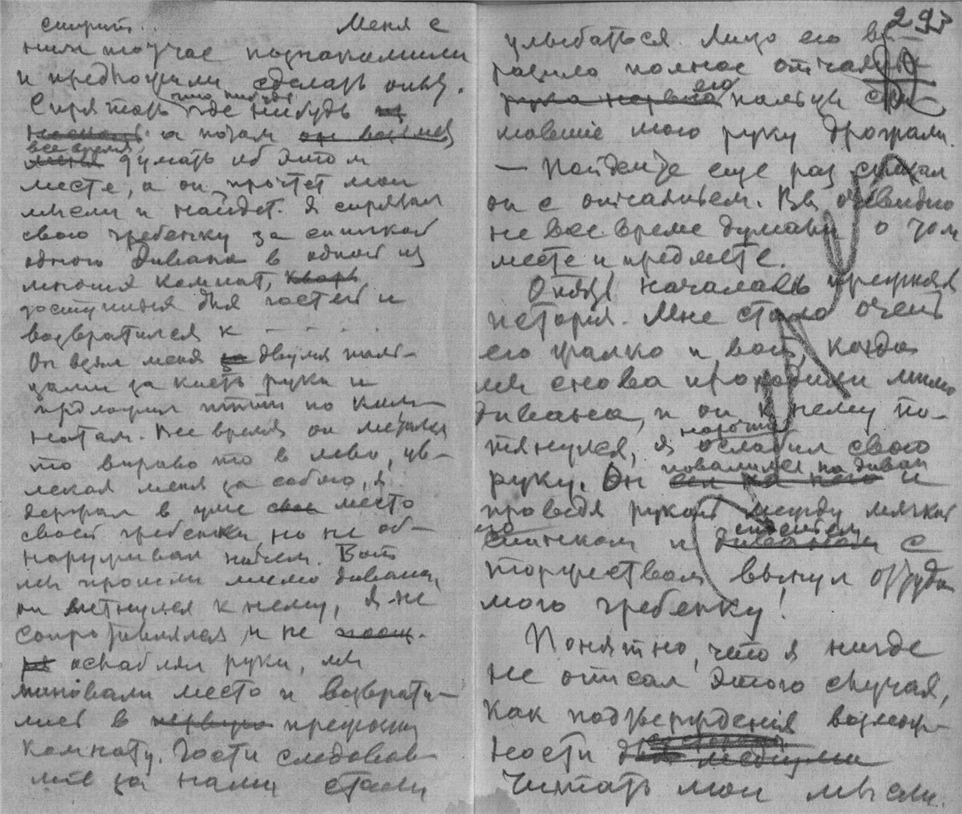 спирит.. Меня с
ним тотчас познакомили
и предложили сделать опыт.
Спрятать что нибудь где нибудь
а потом
все время думать об этом
месте, а он прочтет мои
мысли и найдет. Я спрятал
свою гребенку за спинкой
одного дивана в одной из
многих комнат,
доступных для гостей и
возвратился к - - - -
Он взял меня за двумя паль-
цами за кисть руки и
предложил идти по ком-
натам. Все время он метался
то вправо то в лево, ув-
лекая меня за собою, я
держал в уме место
своей гребенки но не об-
наруживал ничем. Вот
мы прошли мимо дивана,
он метнулся к нему, я не
сопротивлялся и не
ослаблял руки, мы
миновали место и возврати-
лись в первую прежнюю
комнату. Гости следовав-
шие за нами стали
293
улыбаться. Лицо его вы-
разило полное отчаянье
рука нервно его пальцы сжи-
мавшие мою руку дрожали.
— Пойдемте еще раз сказал
он с отчаяньем. Вы очевидно
не все время думали о том
месте и предмете.
Опять началась прежняя
история. Мне стало очень
его жалко и вот, когда
мы снова проходили мимо
дивана, и он к нему по-
тянулся, я нарочно ослабил свою
руку. Он сел на него повалился на диван и
проведя рукой между мягкой
его спинкой и диваном сиденьем с
торжеством вынул оттуда
мою гребенку!
Понятно, что я нигде
не описал этого случая,
как подтверждения возмож-
ности
читать мои мысли.